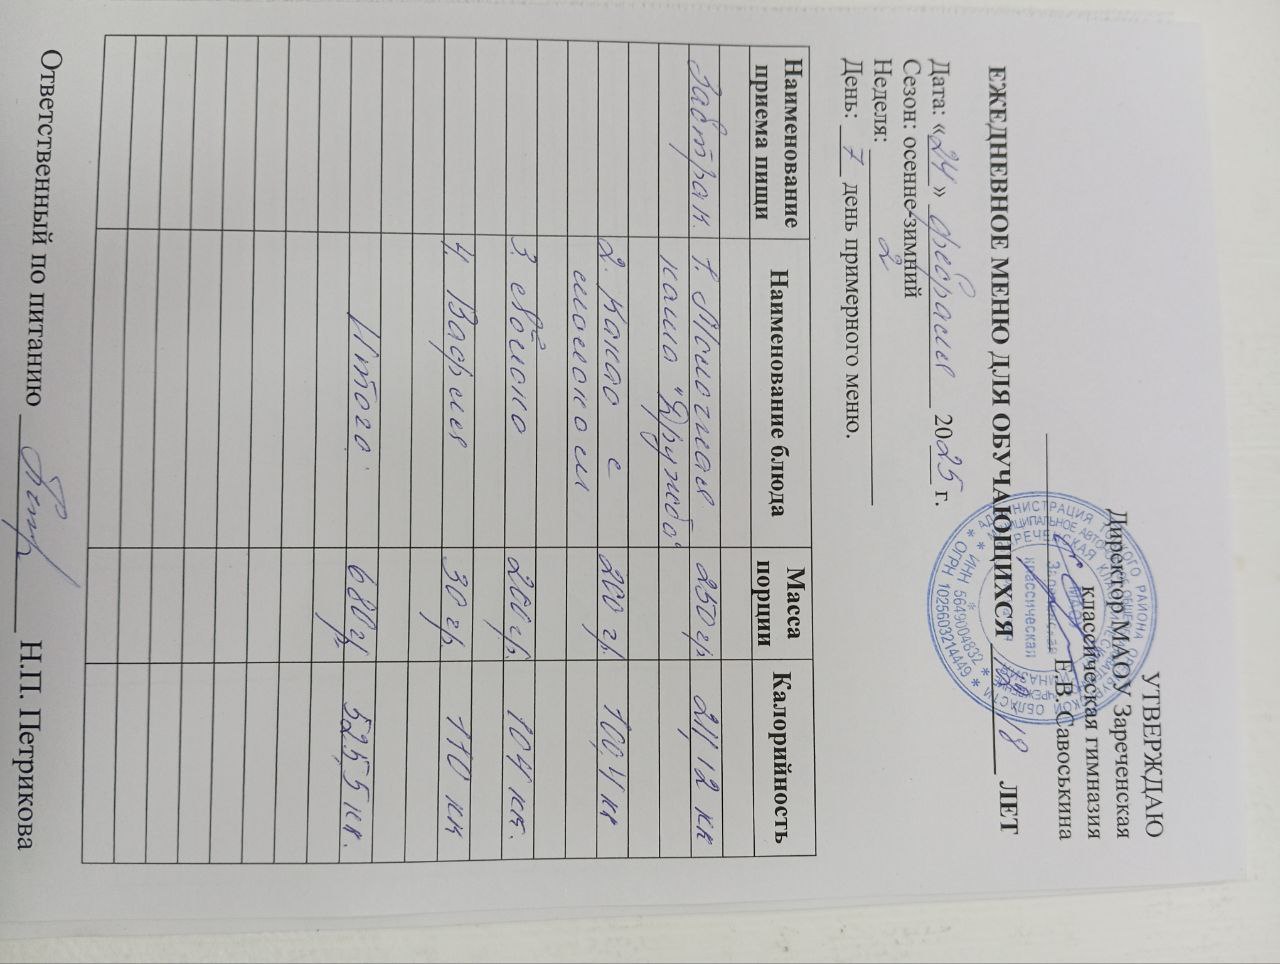 УТВЕРЖДАЮ
Директор МАОУ Зареченская
классическая гимназия
Е.В. Савоськина
ЕЖЕДНЕВНОЕ МЕНЮ ДЛЯ ОБУЧАЮЩИХСЯ 18 ЛЕТ
Дата: «24» февраля 2025 г.
Сезон: осенне-зимний
Неделя: 2
День: 7 день примерного меню.
Наименование приема пищи Наименование блюда Масса порции Калорийность
Завтрак. 1. Молочная 250 гр. 211,12 кк
каша "Дружба"
2. Какао с 200 гр. 100,4 кк
молоком
3. яблоко 200 гр. 104 кк.
4. Вафля 30 гр. 110 кк
Итого 680 гр. 525,5 кк.
Ответственный по питанию Н.П. Петрикова
ИНН 5649004832
ОГРН 1025603214449